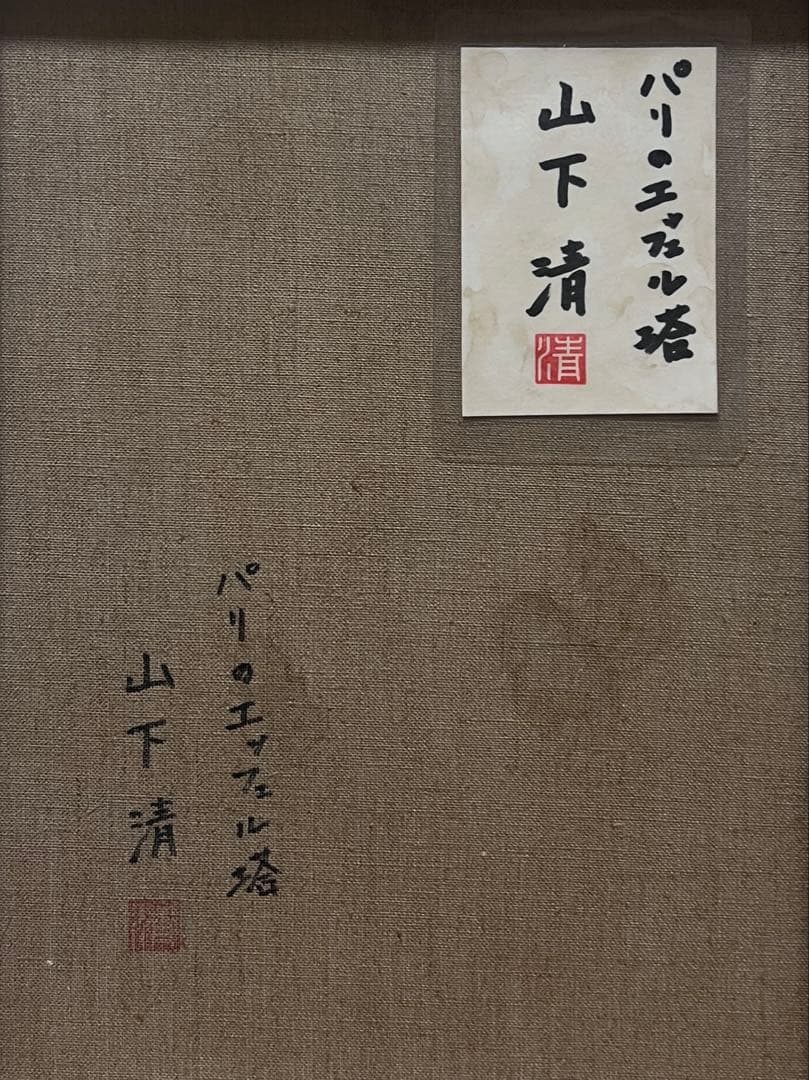 パリのエッフェル塔
山下清
清
パリのエッフェル塔
山下清
清